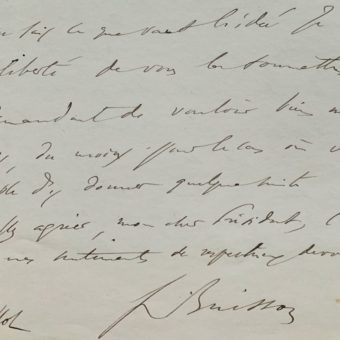 ce que vaut l'idée Je
liberté de vous la soumettre
mandant de vouloir bien
du moins pour le cas où v
d'y donner quelque suite
agréer, mon cher Président, l
mes sentiments de respectueux dévou
F. Buisson